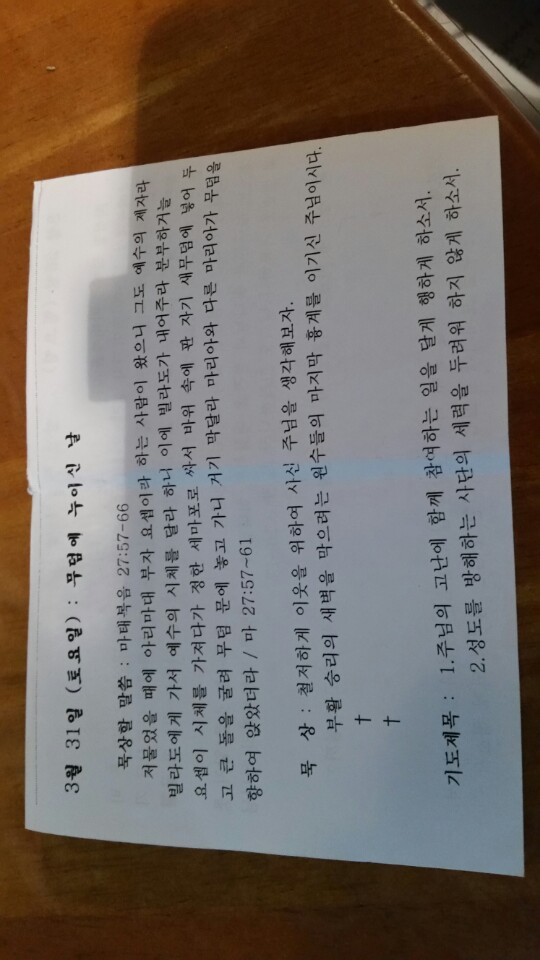 3월 31일 (토요일) : 무덤에 누이신 날
묵상할 말씀 : 마태복음 27:57-66
저물었을 때에 아리마대 부자 요셉이라 하는 사람이 왔으니 그도 예수의 제자라
빌라도에게 가서 예수의 시체를 달라 하니 이에 빌라도가 내어주라 분부하거늘
요셉이 시체를 가져다가 정한 세마포로 싸서 바위 속에 판 자기 새무덤에 넣어 두
고 큰 돌을 굴려 무덤 문에 놓고 가니 거기 막달라 마리아와 다른 마리아가 무덤을
향하여 앉았더라 / 마 27:57~61
묵 상 : 철저하게 이웃을 위하여 사신 주님을 생각해보자.
부활 승리의 새벽을 막으려는 원수들의 마지막 흉계를 이기신 주님이시다.
†
†
기도제목 : 1.주님의 고난에 함께 참여하는 일을 달게 행하게 하소서.
2.성도를 방해하는 사단의 세력을 두려워 하지 않게 하소서.